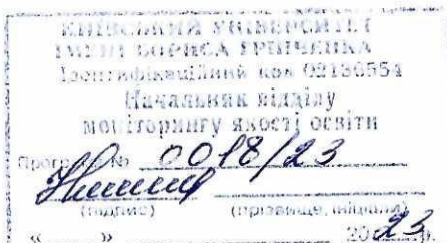 КИЇВСЬКИЙ УНІВЕРСИТЕТ
ІМЕНІ БОРИСА ГРІНЧЕНКА
Ідентифікаційний код 02136554
Начальник відділу
моніторингу якості освіти
Програма № 0018/23
(підпис) (прізвище, ініціали)
« » 2023 р.